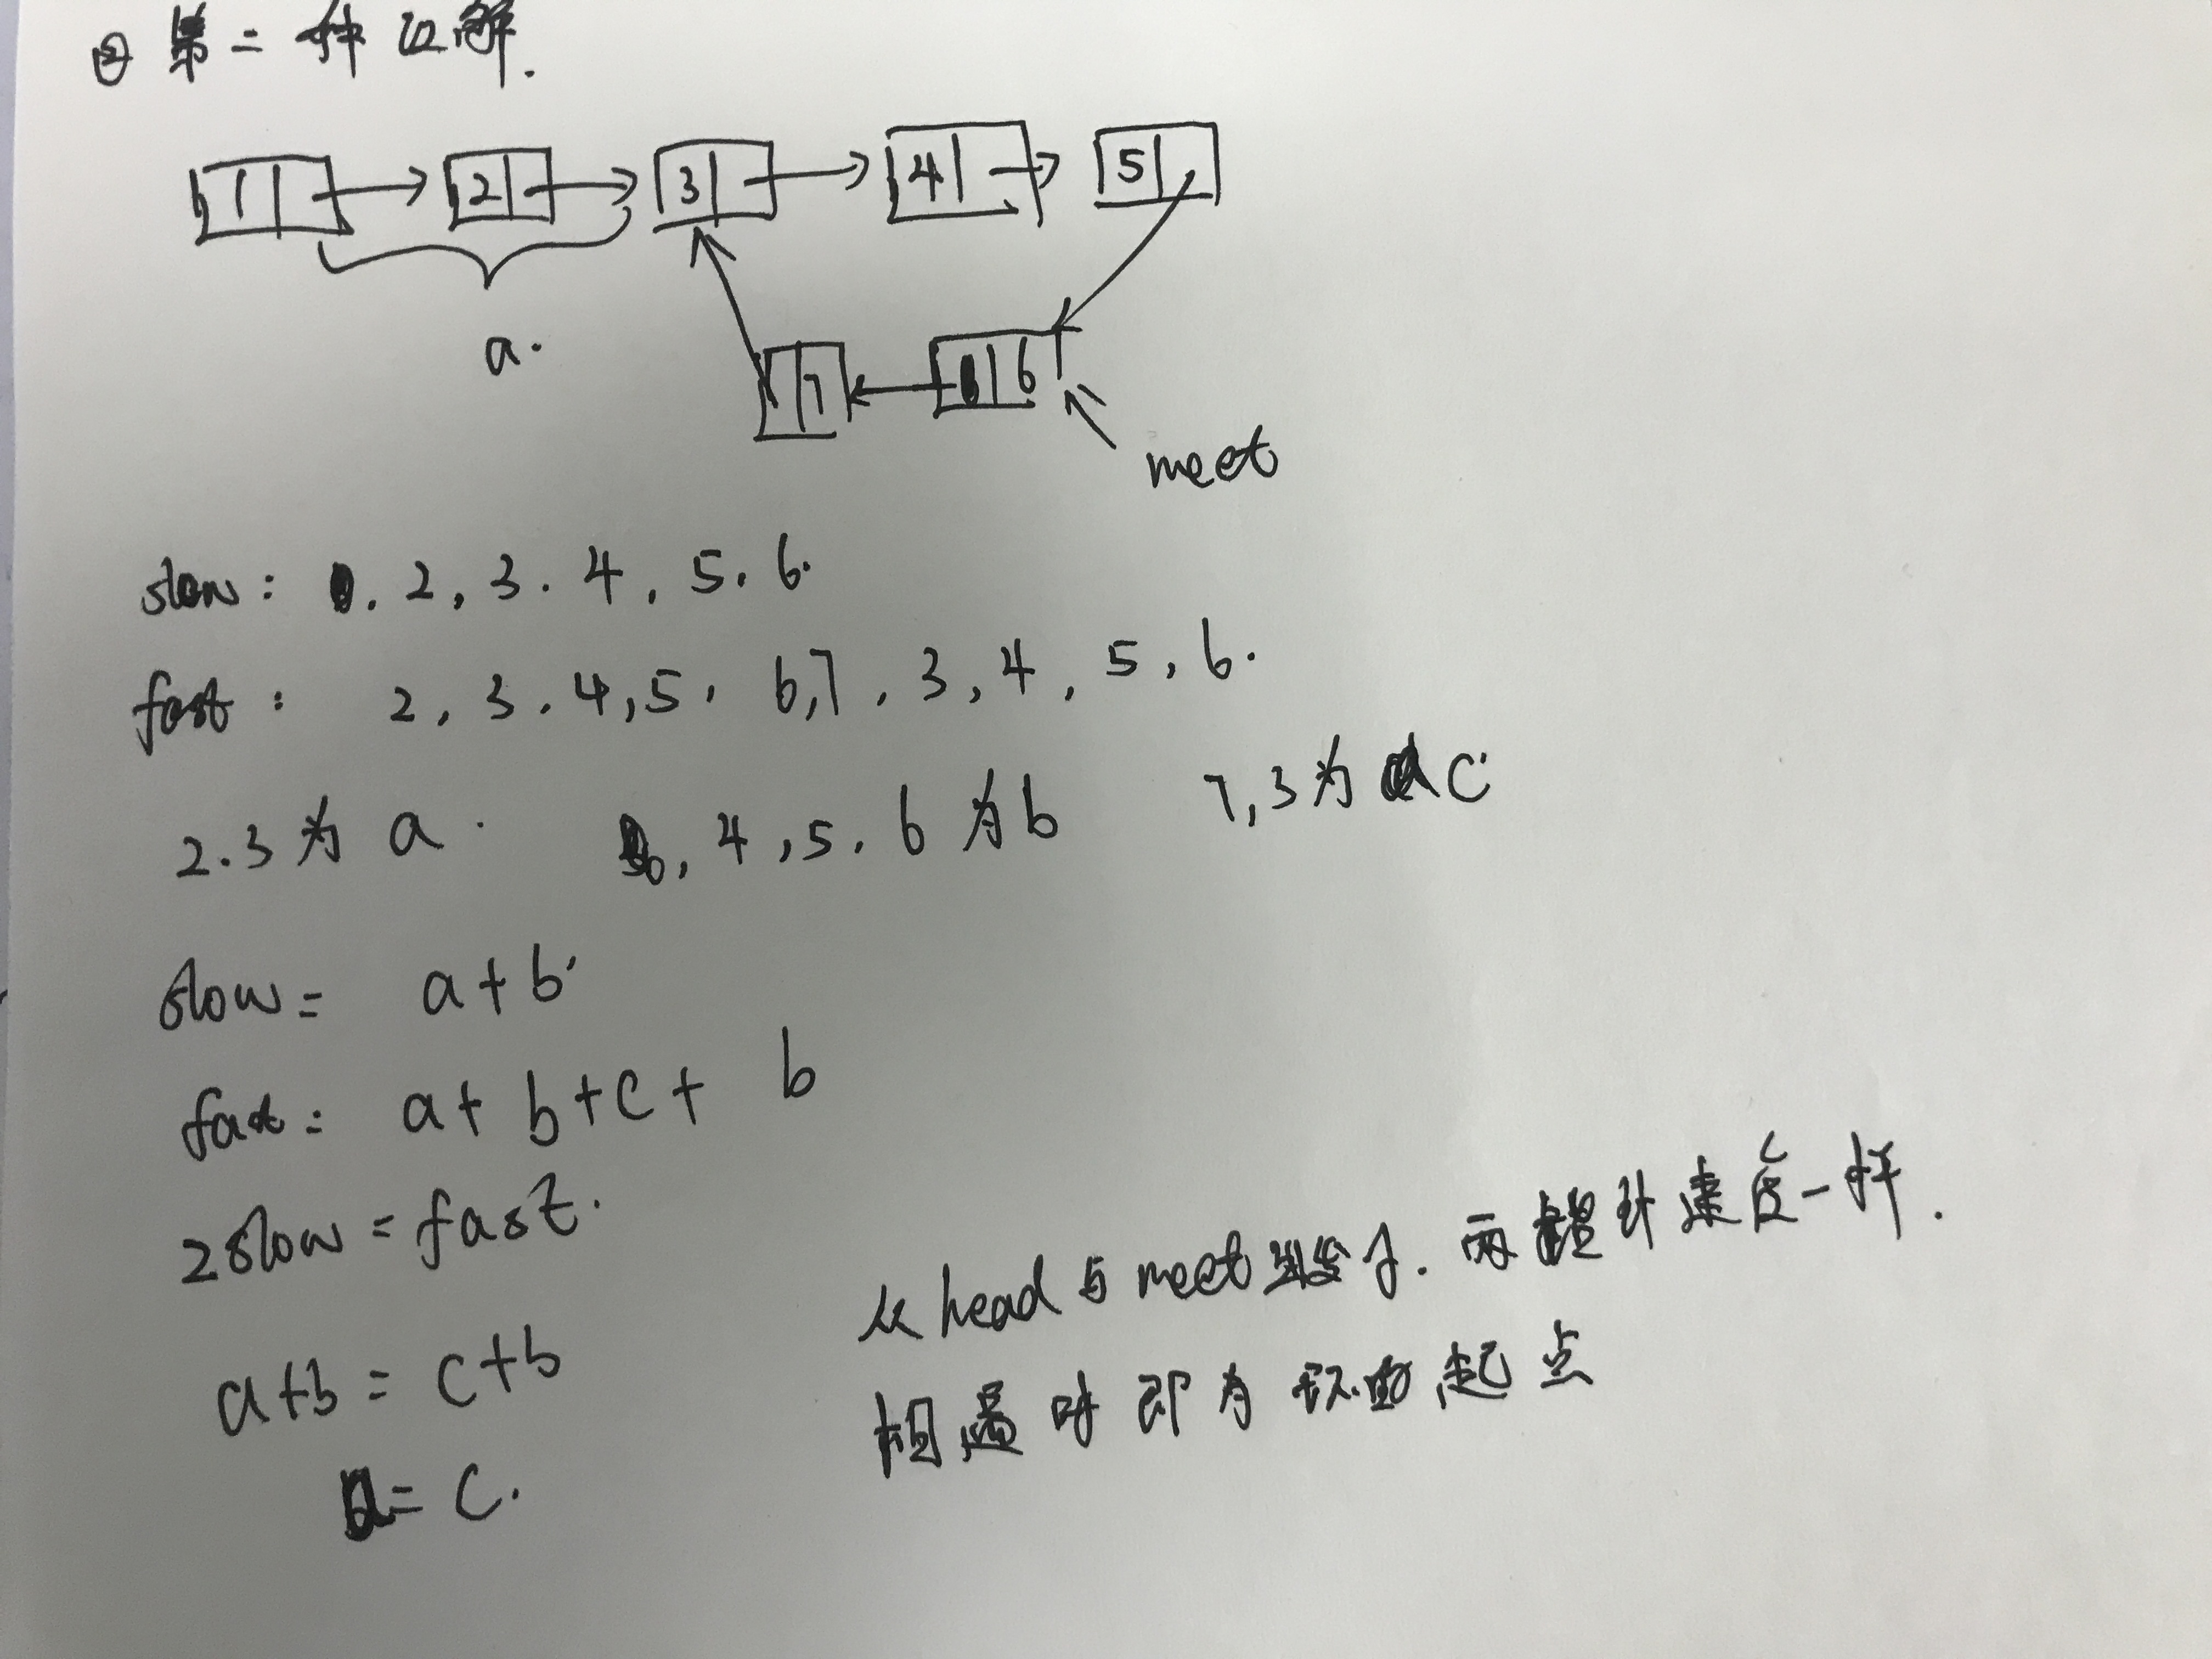 ② 第二种理解.
1 2 3 4 5
a.
7 6
meet
slow: . 2, 3. 4, 5. 6.
fast: 2, 3. 4,5, 6,7, 3, 4, 5, 6.
2.3为 a. , 4,5. 6为b 7,3为 C
slow= a+b
fast: a+ b+c+ b
2slow=fast.
从head与meet出发, 两指针速度一样.
a+b = c+b
相遇时即为环的起点
a= c.